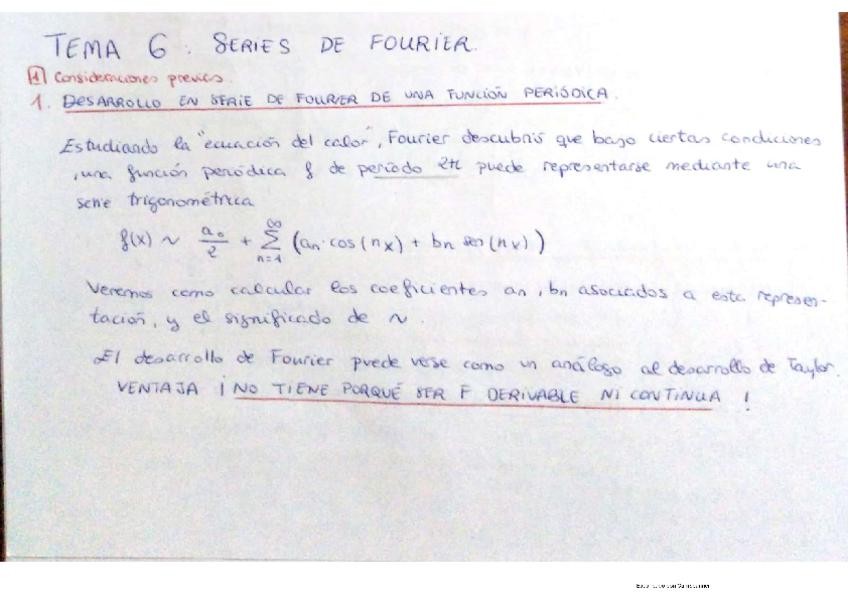 TEMA 6. SERIES DE FOURIER.
1 Consideraciones previas.
1. DESARROLLO EN SERIE DE FOURIER DE UNA FUNCIÓN PERIÓDICA.
Estudiando la "ecuación del calor", Fourier descubrió que bajo ciertas condiciones
, una función periódica f de período 2π puede representarse mediante una
serie trigonométrica
f(x) ~ a₀/2 + ∑_{n=1}^{∞} (an · cos(nx) + bn sen(nx))
Veremos como calcular los coeficientes an, bn asociados a esta represen-
tación, y el significado de ~.
El desarrollo de Fourier puede verse como un análogo al desarrollo de Taylor.
VENTAJA ¡ NO TIENE PORQUÉ SER F DERIVABLE NI CONTINUA !